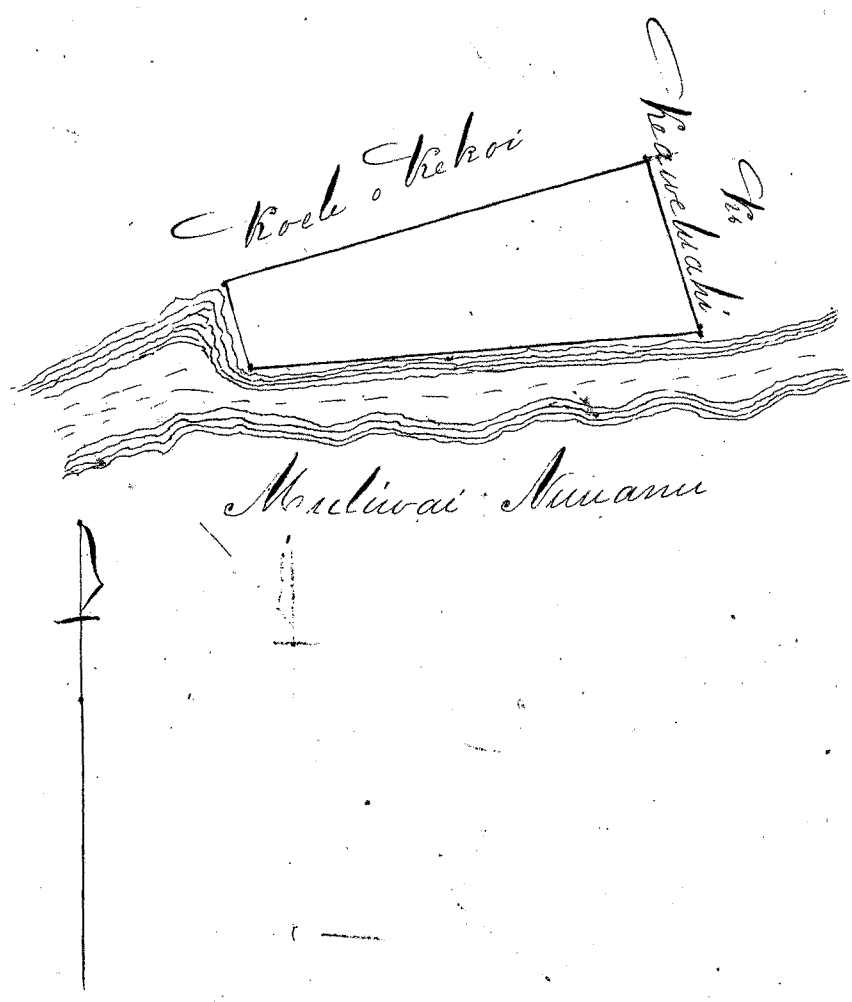 Koele o Kekoi
Keaweluahi
Muliwai Nuuanu